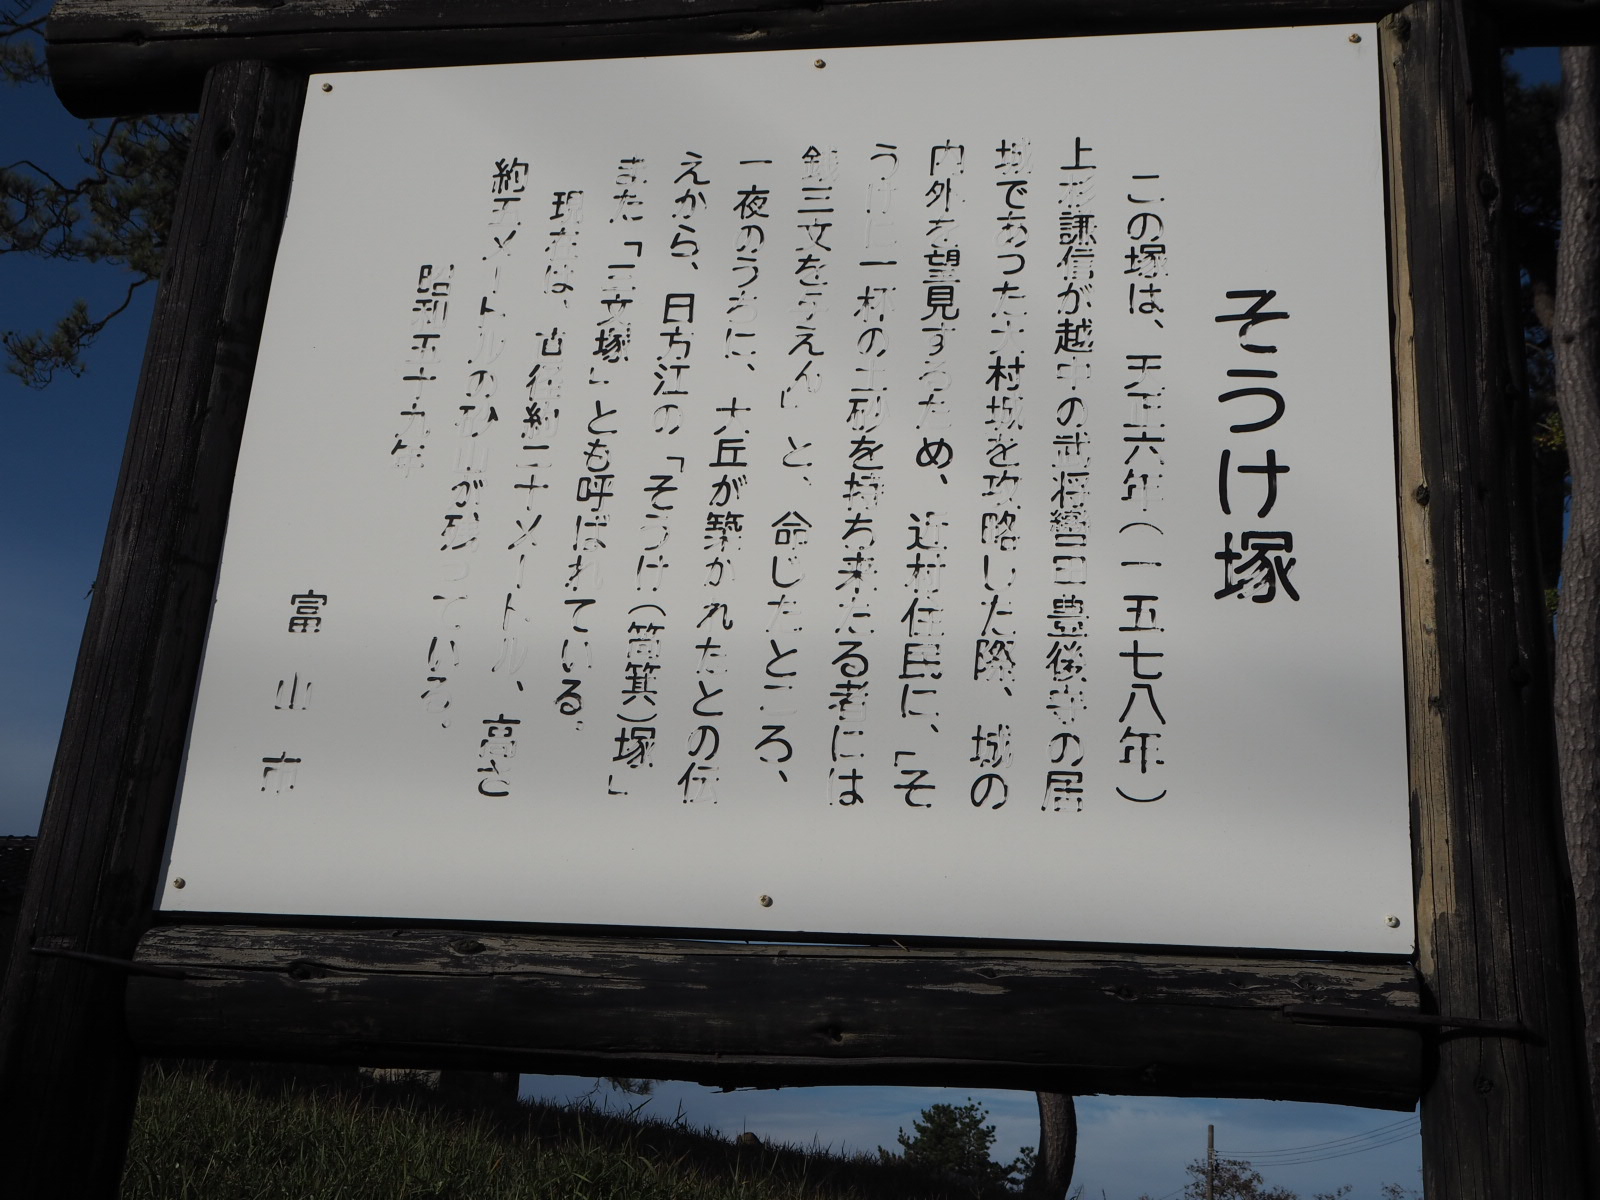 そうけ塚
この塚は、天正六年(一五七八年)
上杉謙信が越中の武将轡田豊後守の居
城であった大村城を攻略した際、城の
内外を望見するため、近村住民に、「そ
うけに一杯の土砂を持ち来たる者には
銭三文を与えん」と、命じたところ、
一夜のうちに、大丘が築かれたとの伝
えから、日方江の「そうけ(笥箕)塚」
また「三文塚」とも呼ばれている。
現在は、直径約二十メートル、高さ
約五メートルの砂山が残っている。
昭和五十九年
富山市